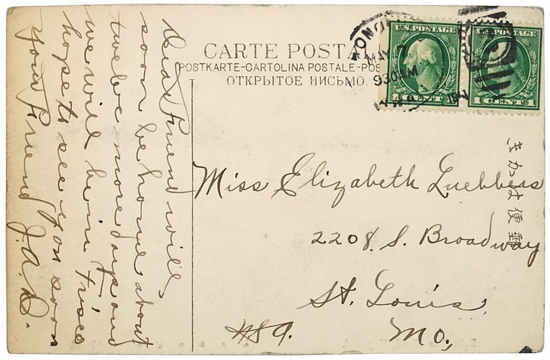 Dear Friend will
soon be home about
twelve more days and
we will be in Frisco
hope to see you soon
Your Friend J.A.D.
CARTE POSTALE
POSTKARTE-CARTOLINA POSTALE-POS
ОТКРЫТОЕ ПИСЬМО
U.S. POSTAGE
1 CENT 1
U.S. POSTAGE
1 CENT 1
MAY
930
Miss Elizabeth Luebbers
2208 S. Broadway
St. Louis
Mo,
#89.
きかは便郵